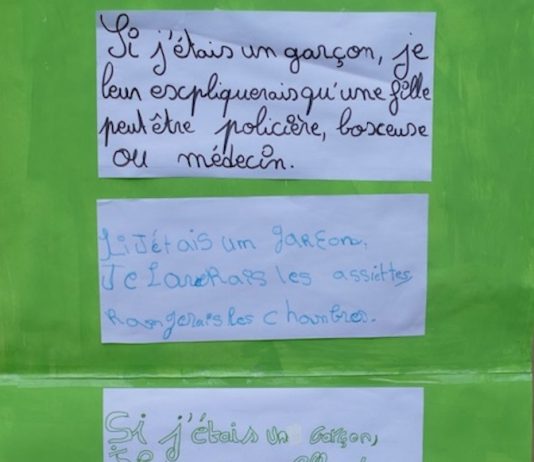 Si j'étais un garçon, je
leur escpliquerais qu'une fille
peut être policière, boxceuse
ou médecin.
Si J'étais un garçon,
Je LaveRais les assiettes
Rangerais les chambres.
Si j'étais un garçon,